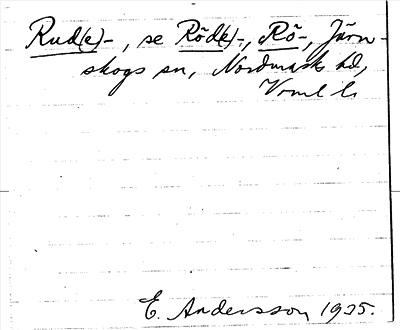 Rud(e)-, se Röd(e)-, Rö-, Järn-
skogs sn, Nordmarks hd,
Vrml l.
E. Andersson 1925.